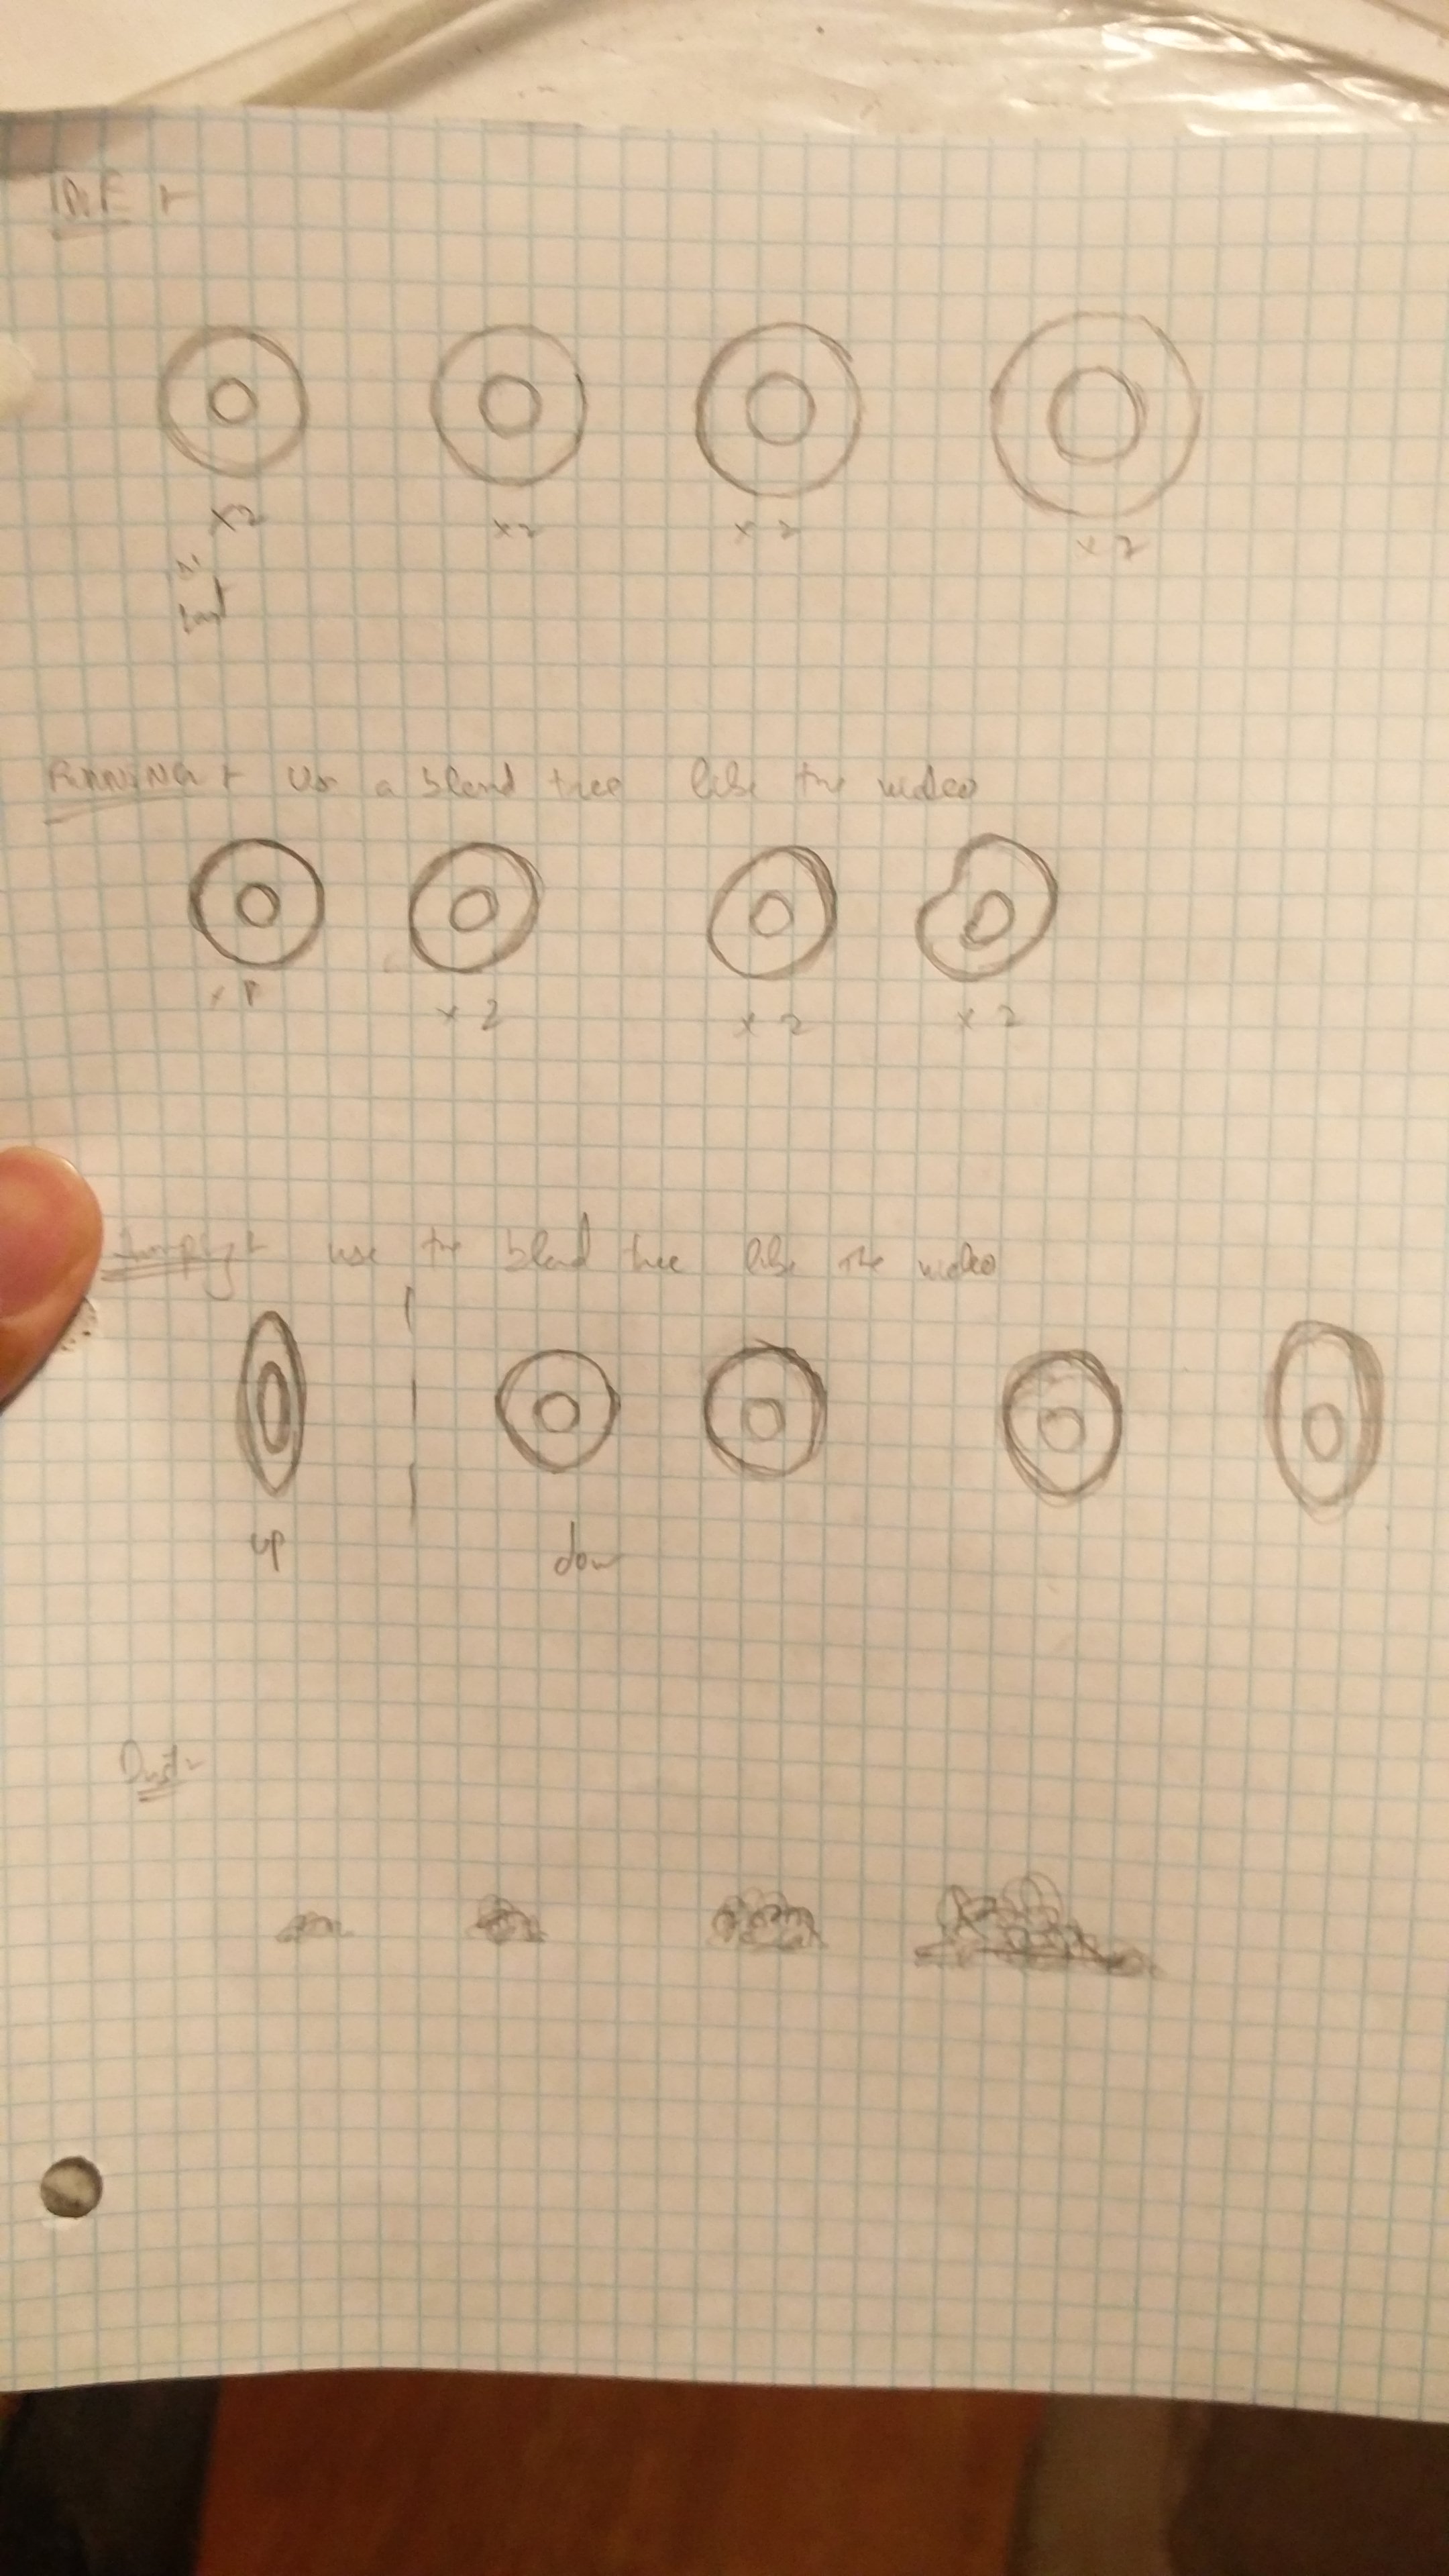 IDLE
x2 x2 x2 x2
RUNNING Use a blend tree like the video
x 2 x 2 x 2
Jumping use the blend tree like the video
up down
Dust